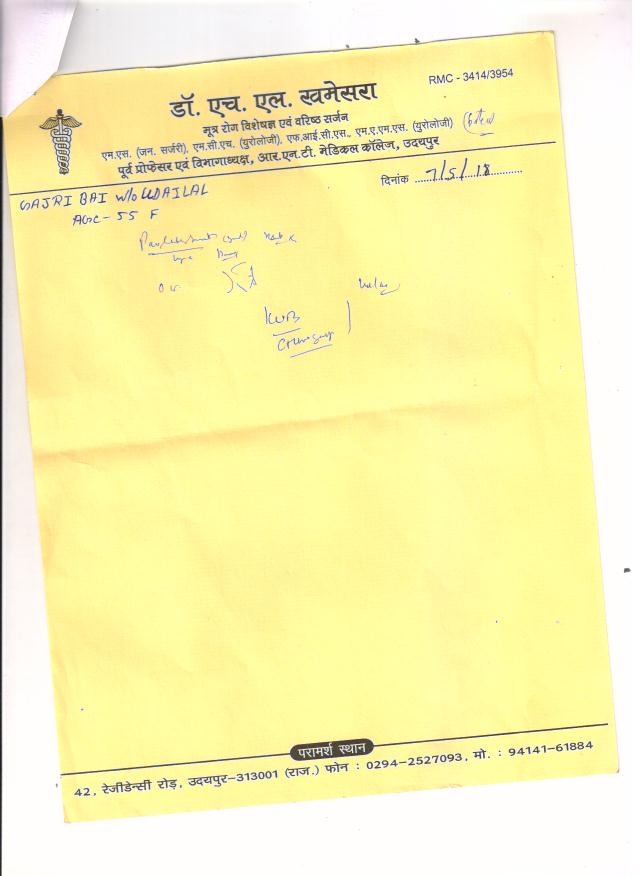 RMC - 3414/3954
डॉ. एच. एल. खमेसरा
मूत्र रोग विशेषज्ञ एवं वरिष्ठ सर्जन
एम.एस. (जन. सर्जरी), एम.सी.एच. (यूरोलोजी), एफ.आई.सी.एस., एम.ए.एम.एस. (युरोलोजी)
पूर्व प्रोफेसर एवं विभागाध्यक्ष, आर.एन.टी. मेडिकल कॉलेज, उदयपुर
दिनांक 7/5/18
GAJRI BAI W/O UDAILAL
AGE - 55 F
KUB
परामर्श स्थान
42, रेजीडेन्सी रोड़, उदयपुर-313001 (राज.) फोन : 0294-2527093, मो. : 94141-61884